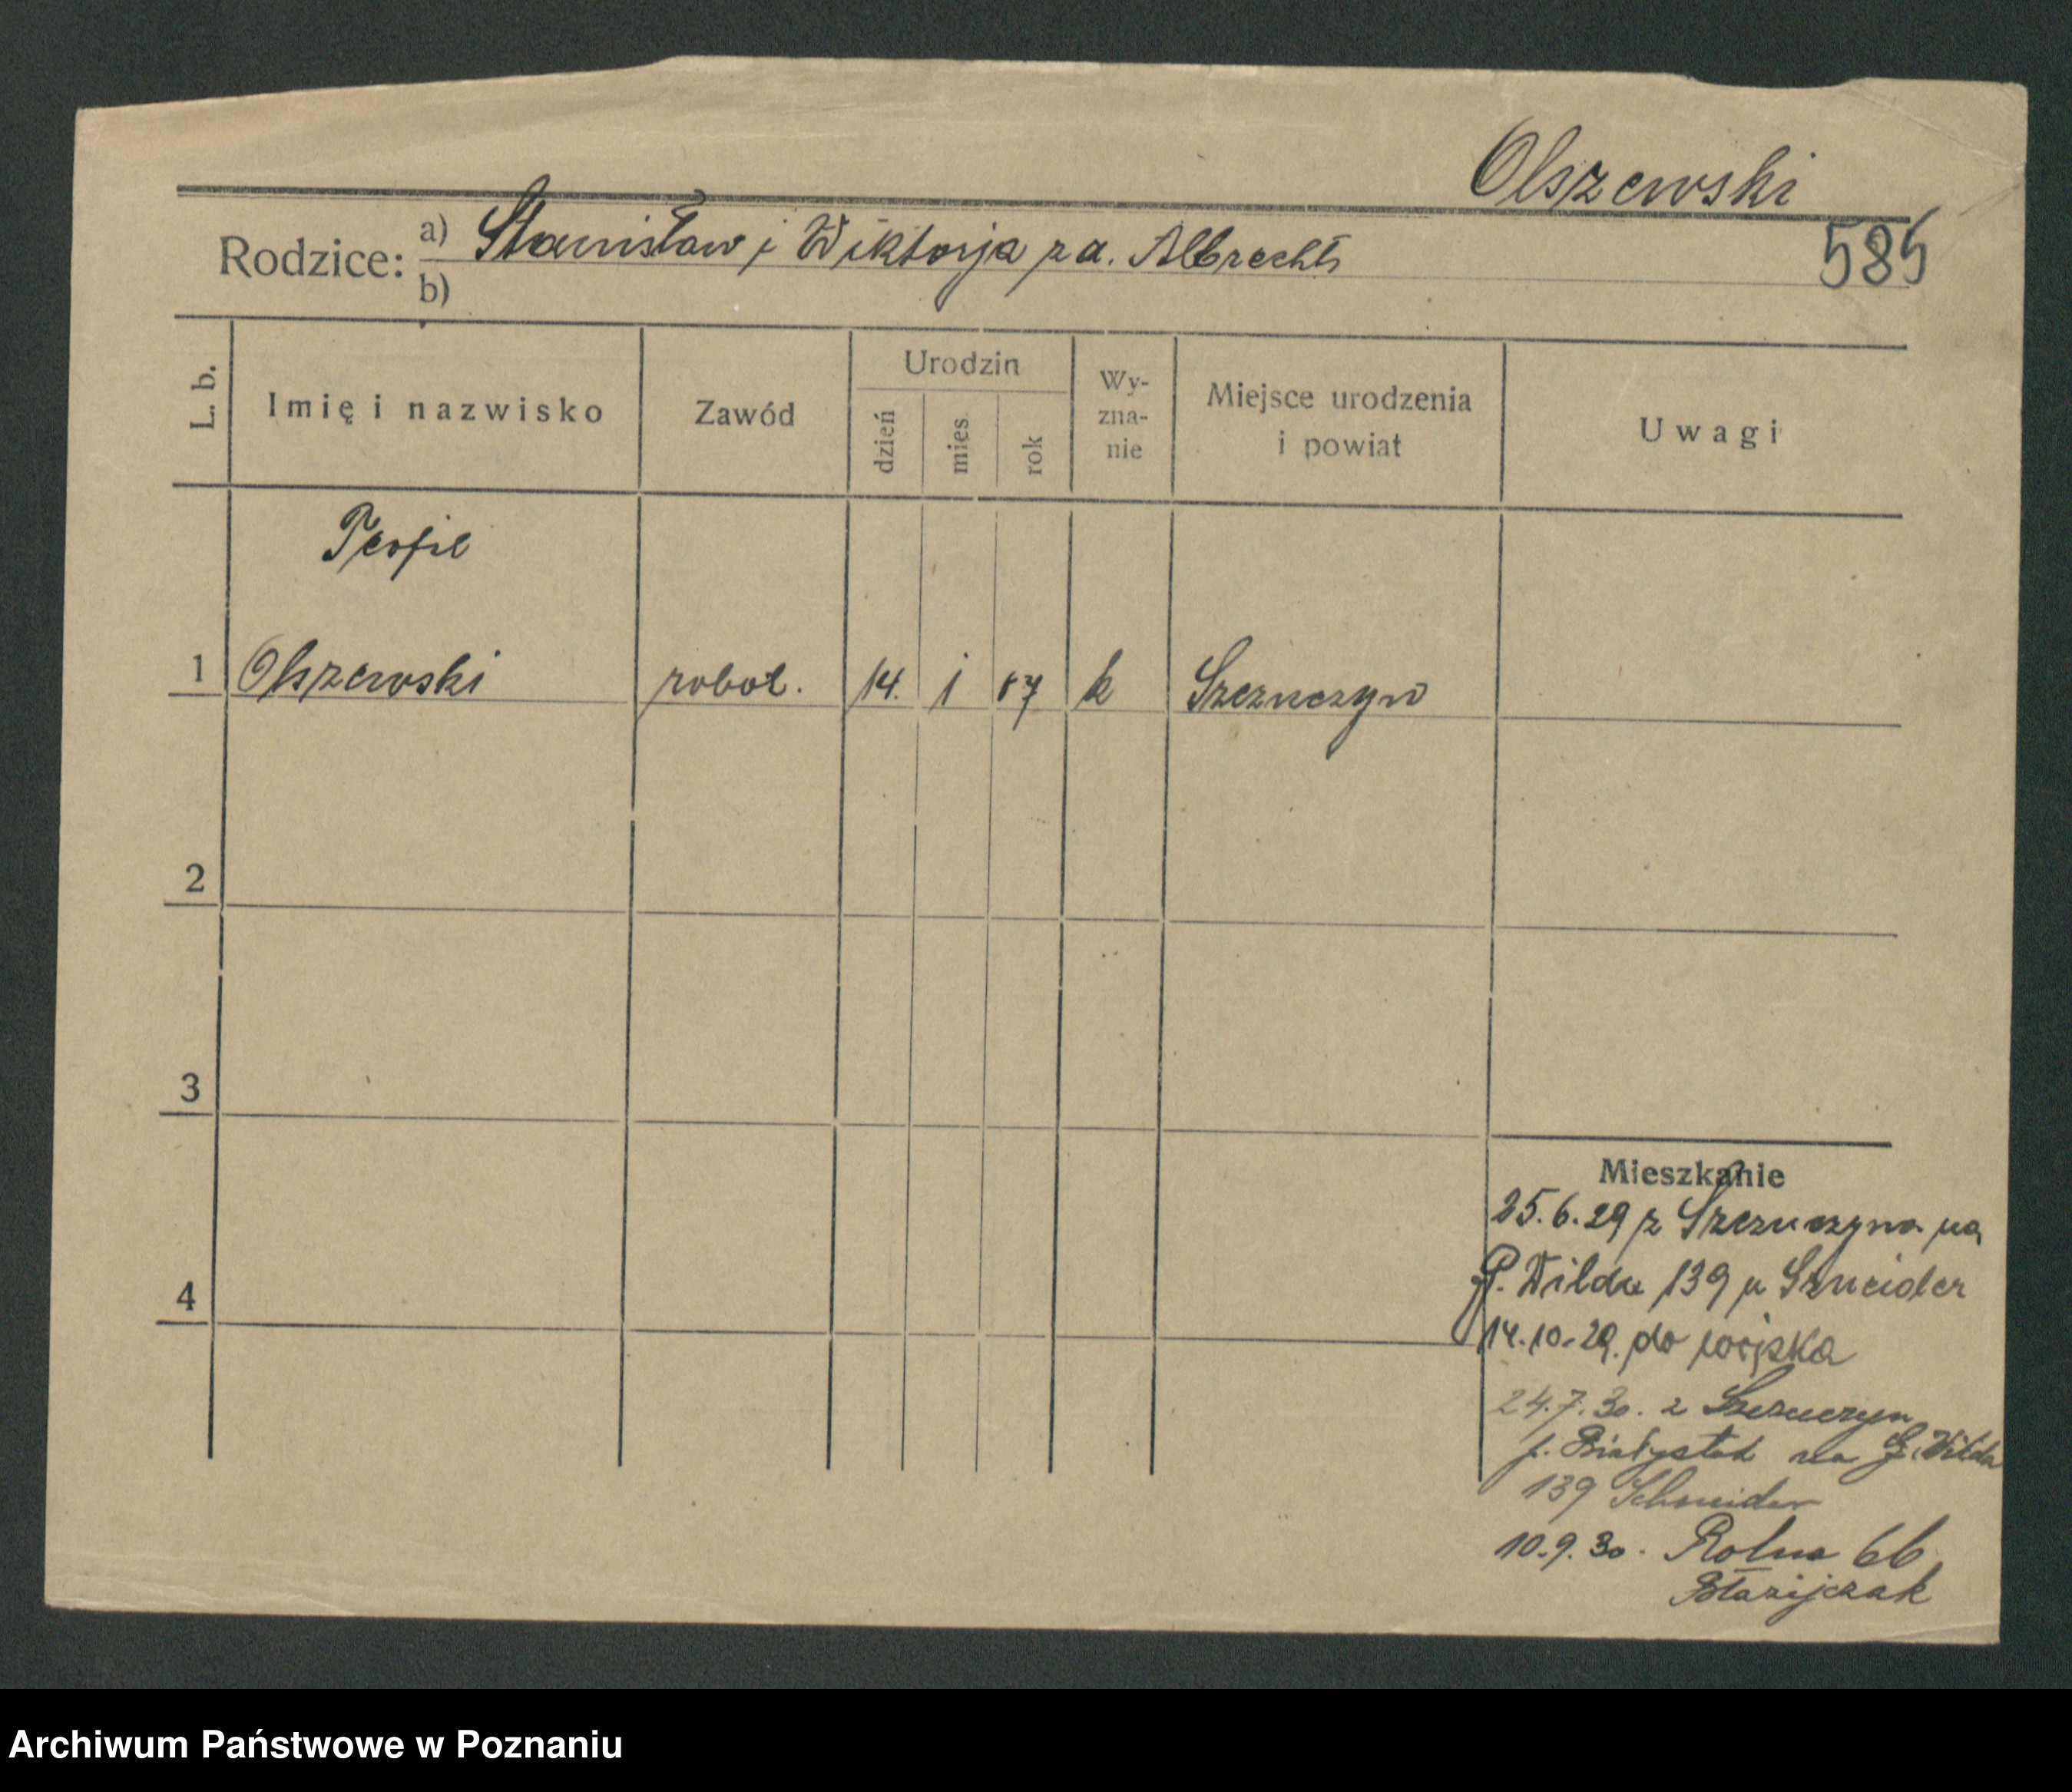 Olszewski
585
Rodzice: a) Stanisław i Wiktorja z d. Albrecht
b)
L. b.
Imię i nazwisko
Zawód
Urodzin
dzień
mies
rok
Wy-
zna-
nie
Miejsce urodzenia
i powiat
Uwagi
Teofil
1 Olszewski robot. 14. 1 07 k Szczuczyn
2
3
4
Mieszkanie
25.6.29 z Szczuczyna na
G. Wilda 139 u Szneider
14.10.29. do wojska
24.7.30. z Szczuczyn
p. Białystok na G. Wilda
139 Schneider
10.9.30. Rolna 66
Błażijczak
Archiwum Państwowe w Poznaniu